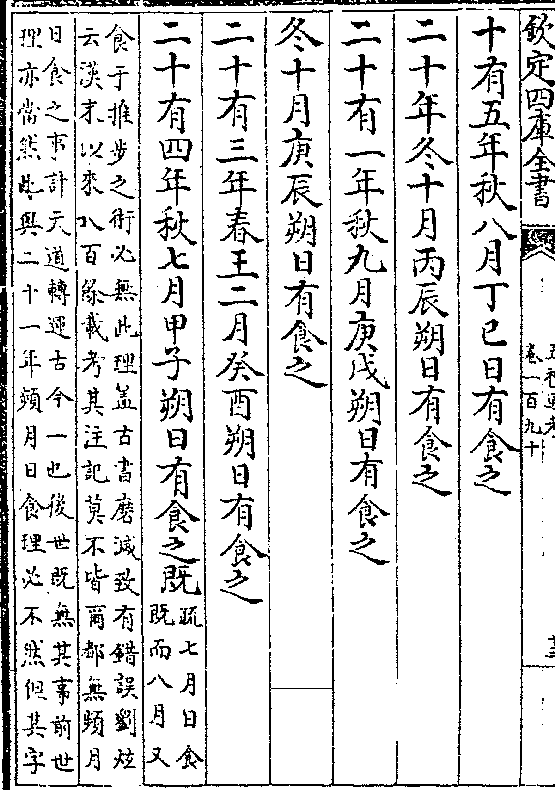 欽定四庫全書
卷一百九十
十有五年秋八月丁巳日有食之
二十年冬十月丙辰朔日有食之
二十有一年秋九月庚戌朔日有食之
冬十月庚辰朔日有食之
二十有三年春王二月癸酉朔日有食之
二十有四年秋七月甲子朔日有食之既疏七月日食
既而八月又
食于推步之術必無此理葢古書磨滅致有錯誤劉炫
云漢末以來八百餘載考其注記莫不皆爾都無頻月
日食之事計天道轉運古今一也後世既無其事前世
理亦當然此與二十一年頻月日食理必不然但其字